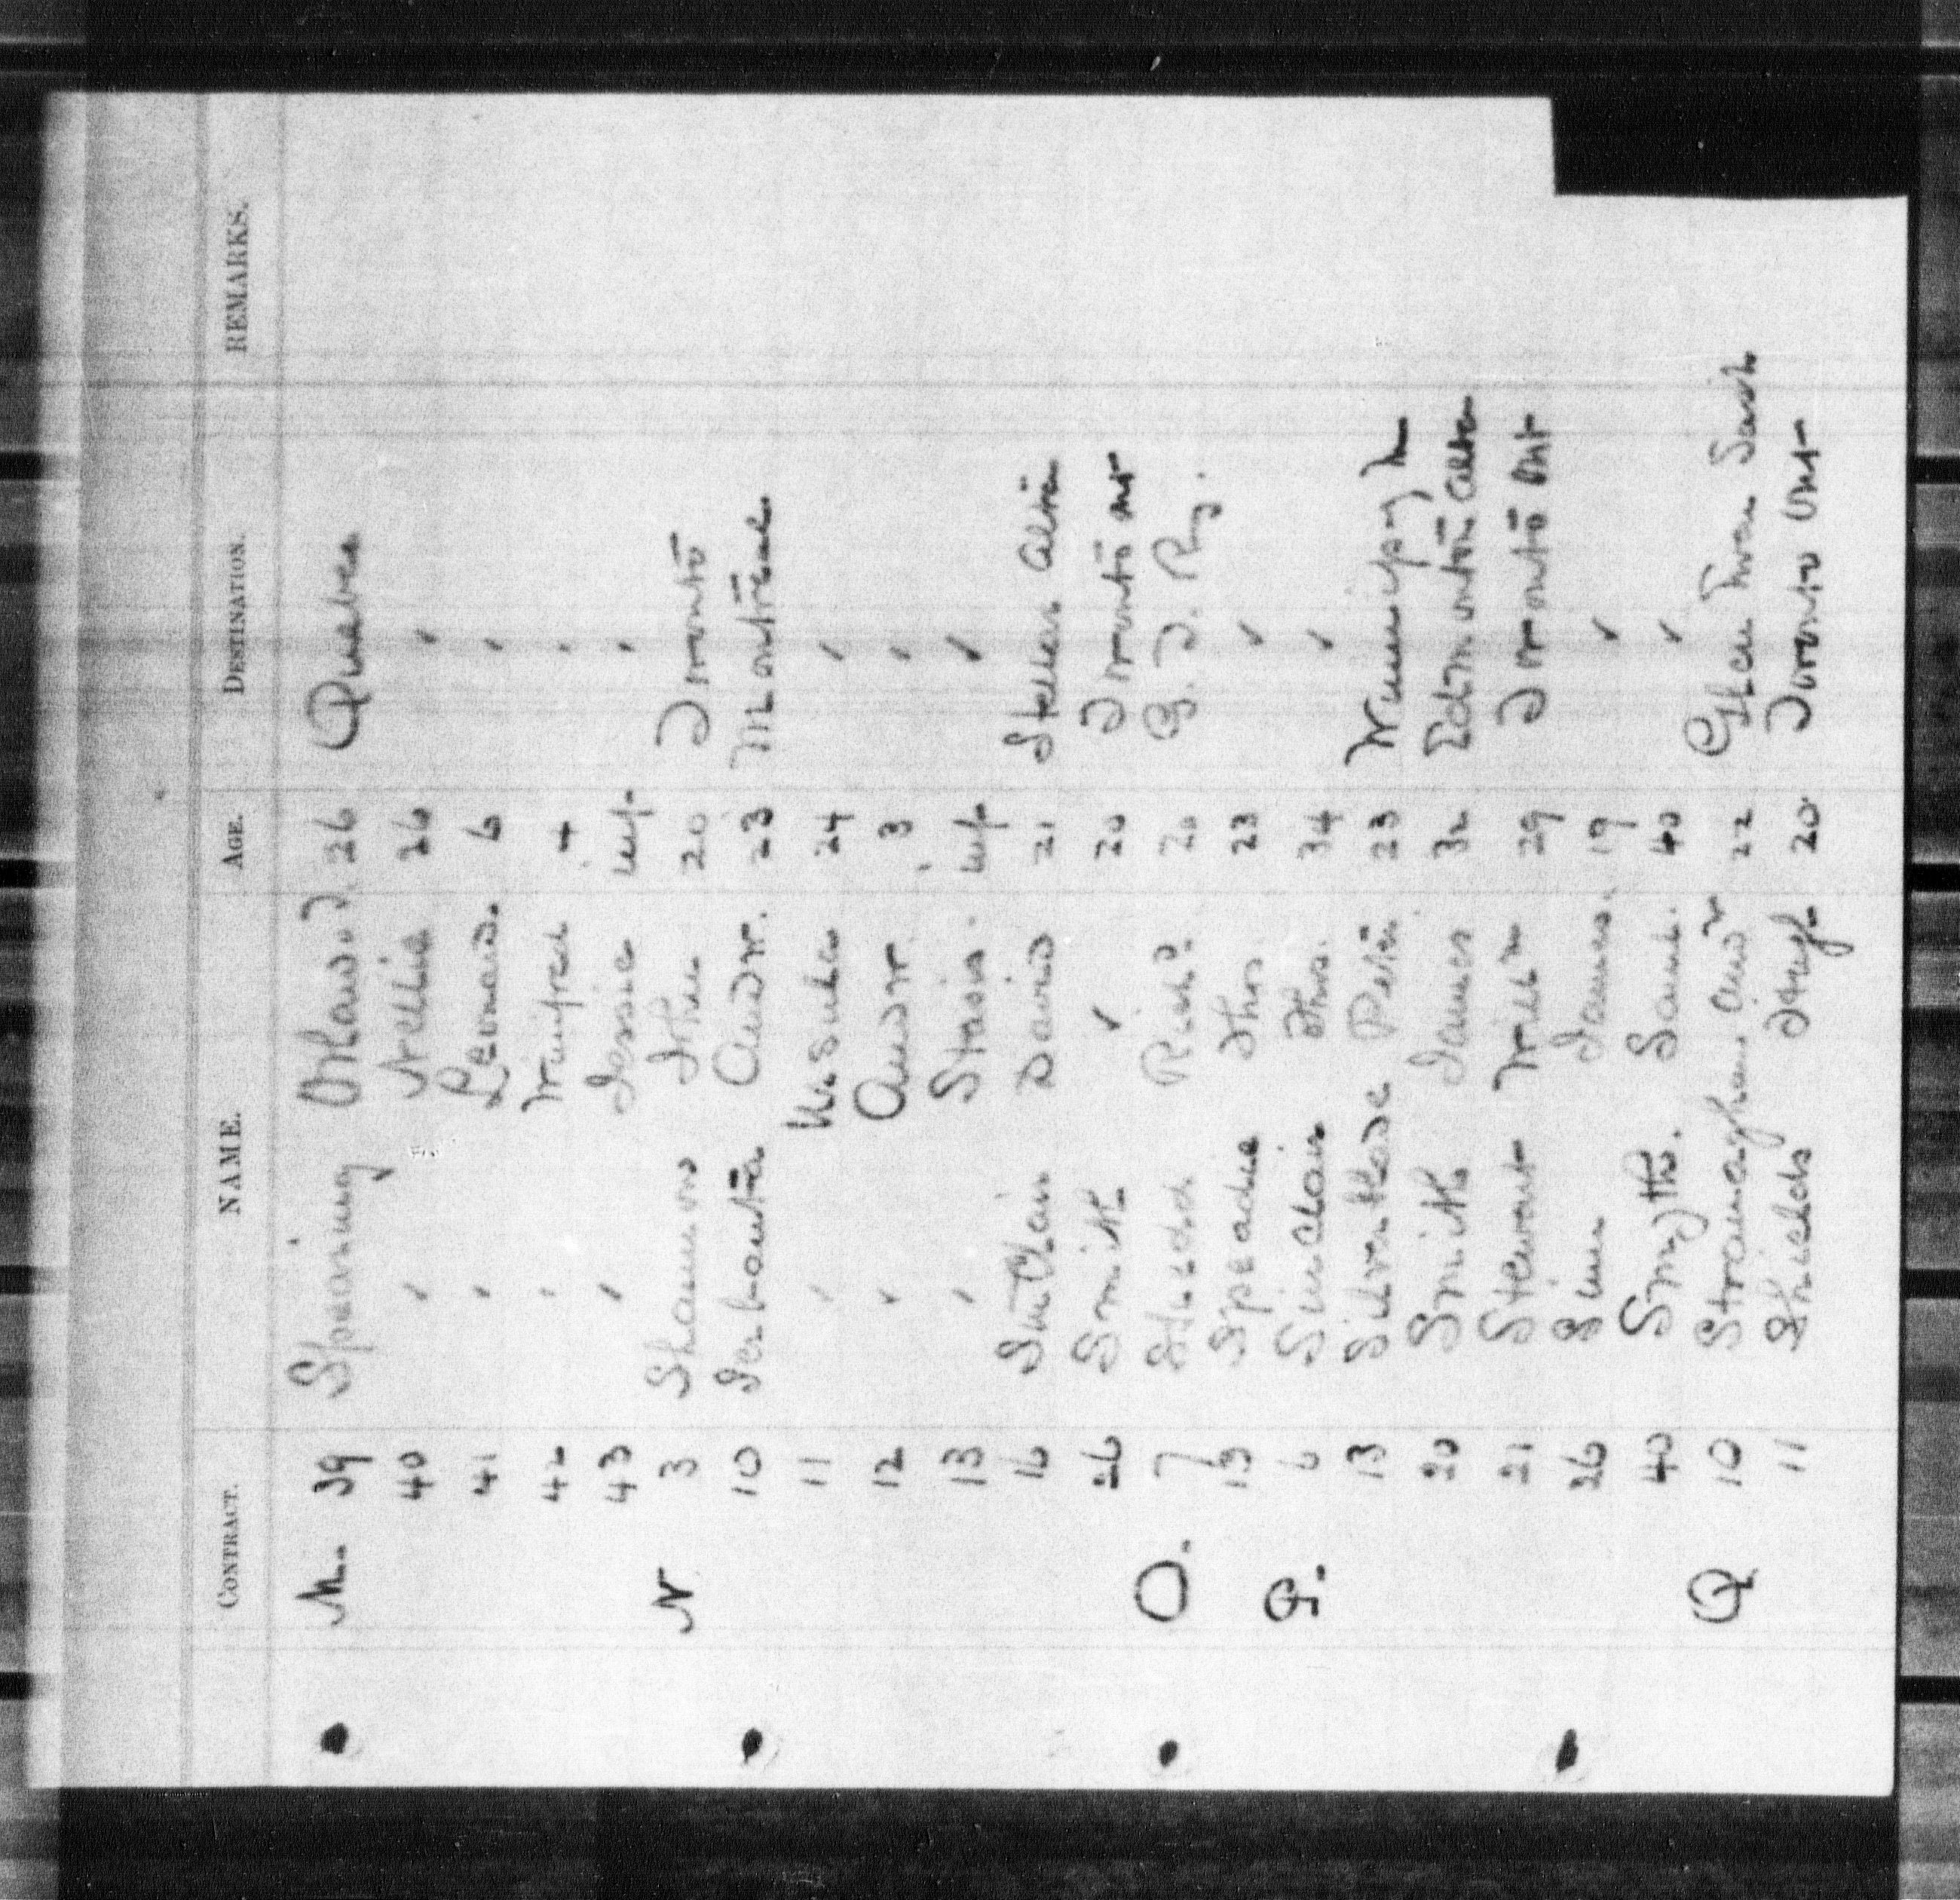 CONTRACT. NAME. AGE. DESTINATION. REMARKS.
M. 39 Spearing Orland J. 26 Quebec
40 " Nellie 26 "
41 " Leonard. 6 "
42 " Winifred 4 "
43 " Jessie inf. "
N 3 Shannon 20 Toronto
10 Andw. 23 Montreal
11 " 24 "
12 " Andw. 3 "
13 " inf. "
16 Sinclair David 21 Alta
26 Smith " 20 Toronto ont
O. 7 Richd. 20 G. T. Ry.
13 Speadie Thos. 23 "
P. 6 Sinclair Thos. 34 "
13 Silverthorne Peter 23 Winnipeg M
20 Smith James 32 Edmonton Alta
21 Stewart Willm 29 Toronto Ont
26 Sim James. 19 "
40 Smyth. Saml. 40 "
Q 10 Andw 22 Glen Sask
11 Shields 20 Toronto Ont